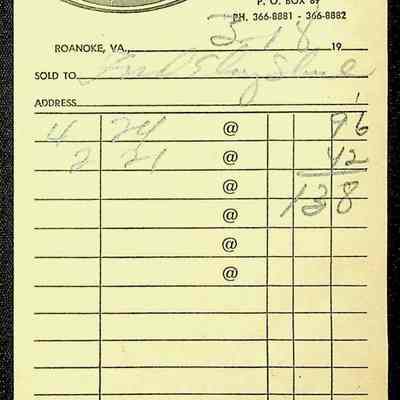 P. O. BOX 89
PH. 366-8881 - 366-8882
ROANOKE, VA., 3-18 19
SOLD TO
ADDRESS
4 24 @ 96
2 21 @ 42
@ 138
@
@
@